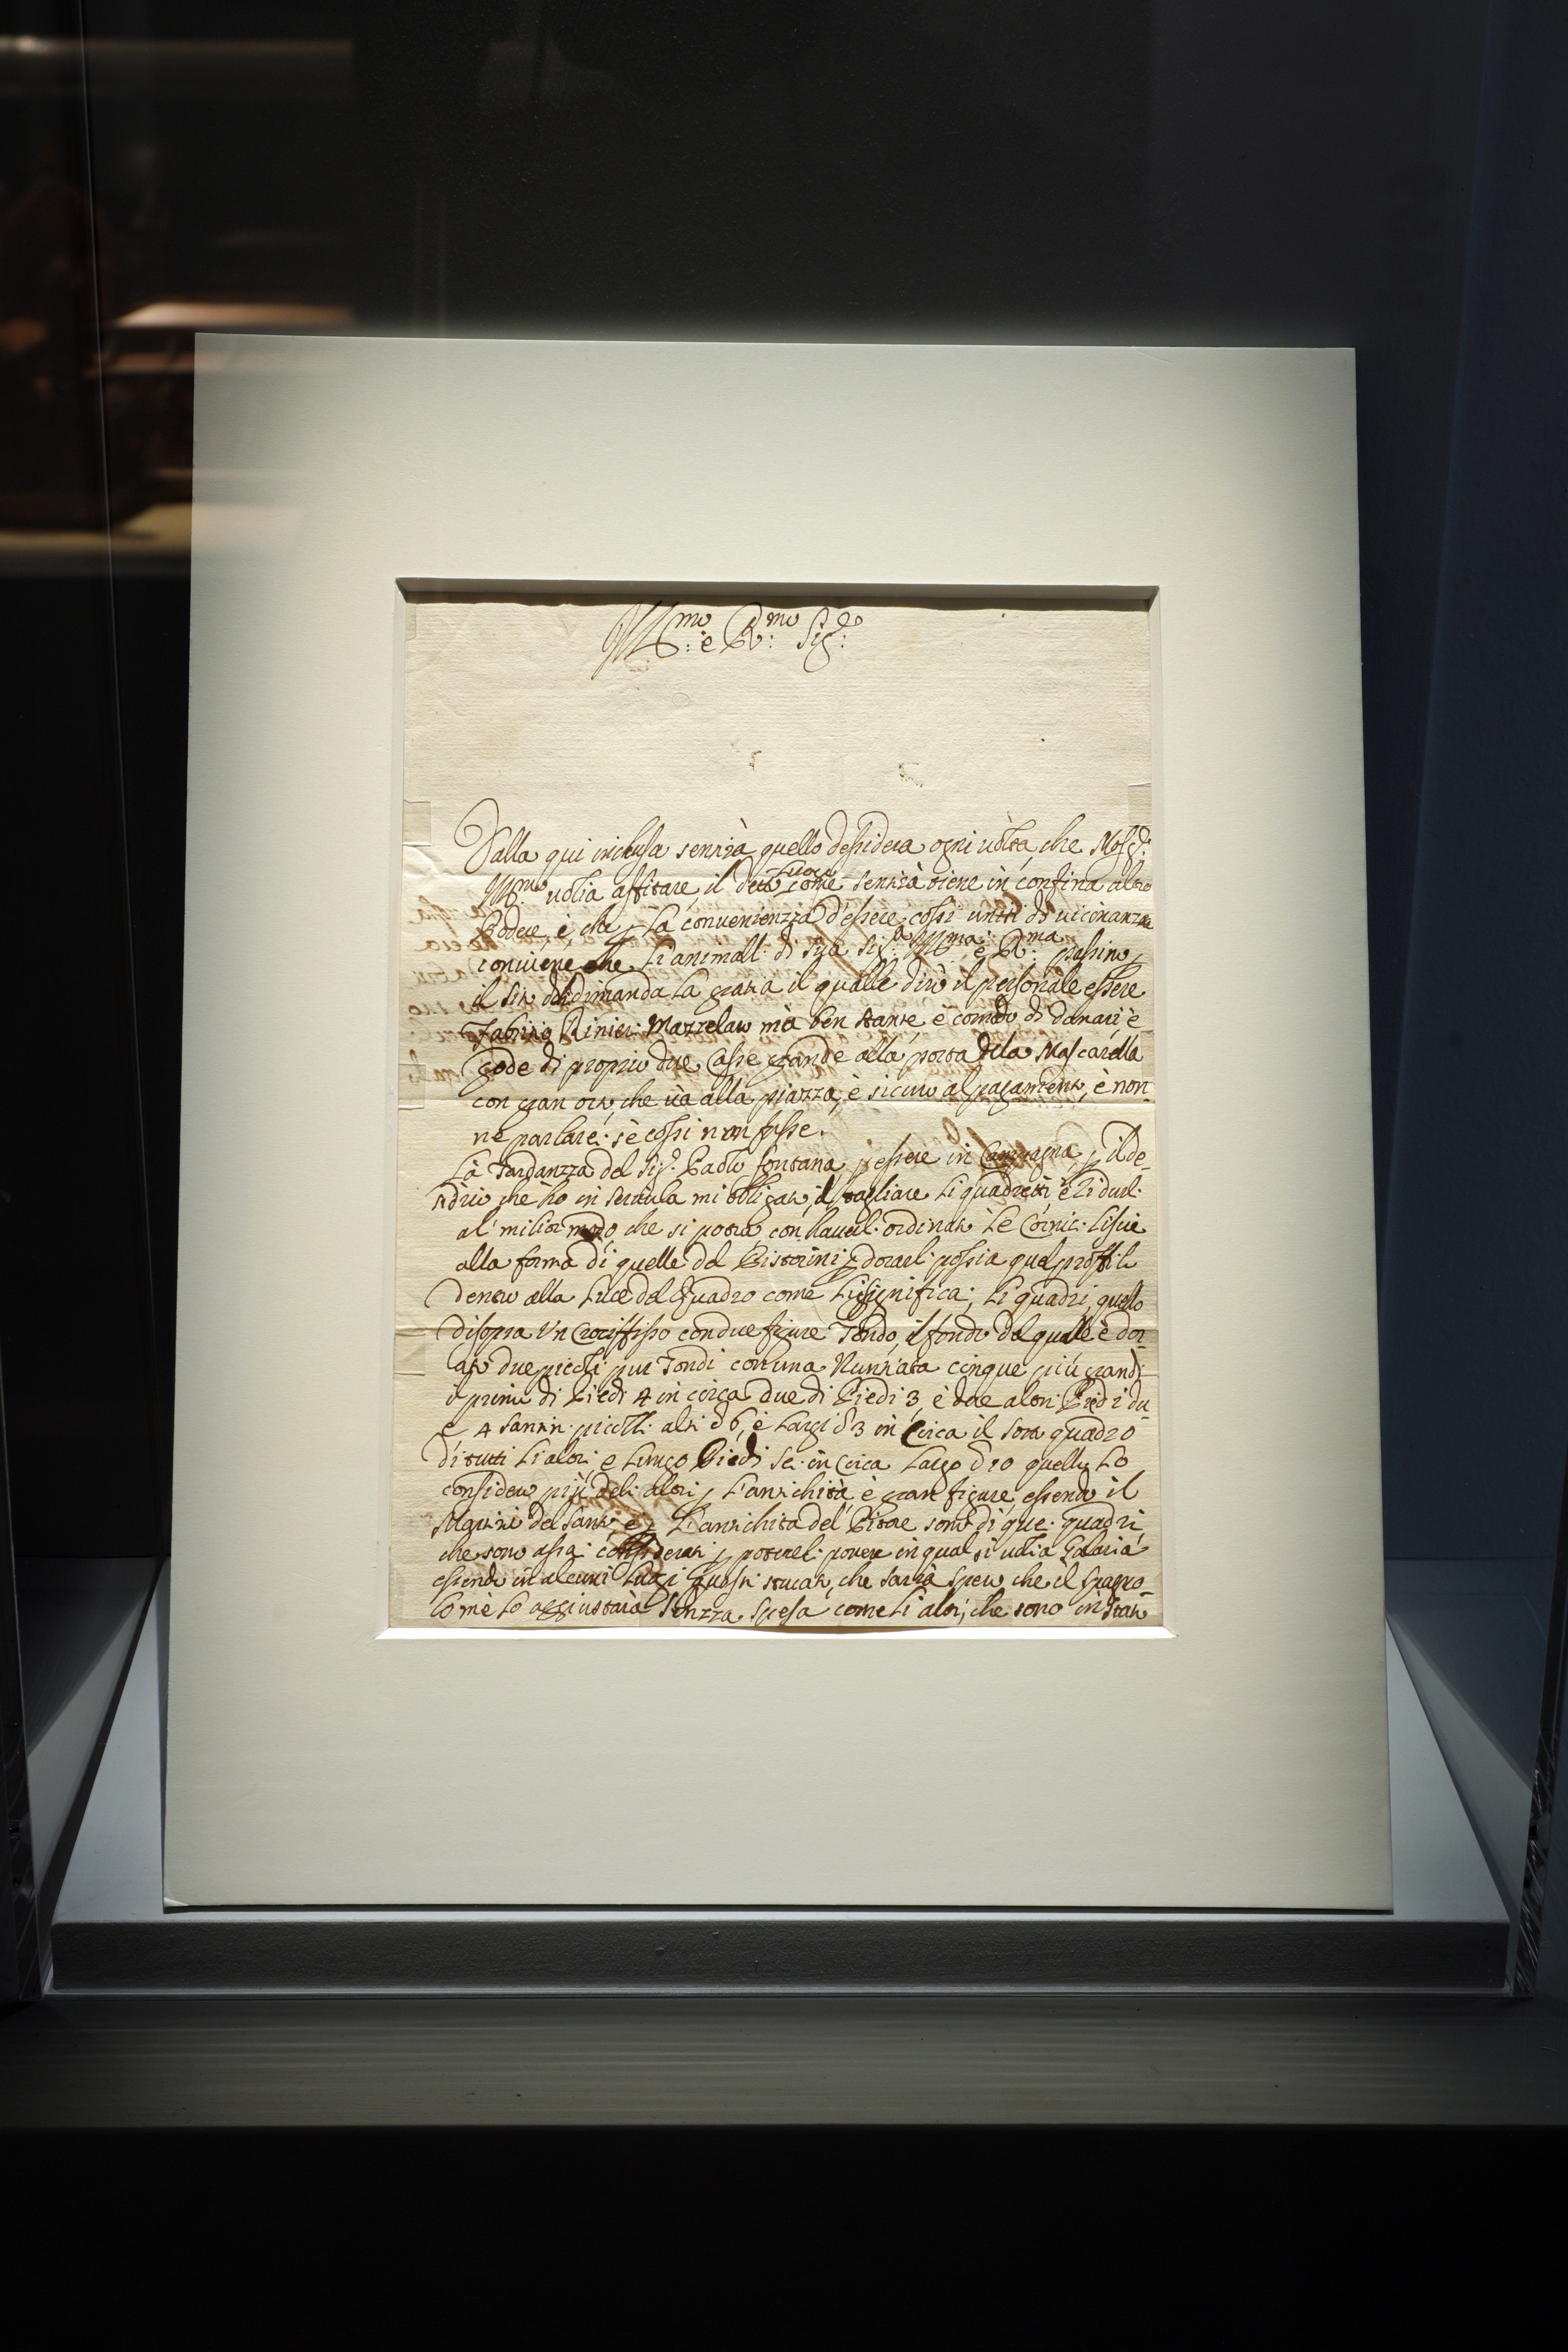 Ill:mo e R:mo Sig:re
Dalla qui inclusa sentirà quello dessidera ogni volta che
Ill:mo volia affitare, il detto Luoco come sentirà viene in confina altro
Podere, è che p La convenienzza d'essere cossi uniti di vicinanza
conviene che Li animali: di sua Sig:a Ill:ma e R:ma passino p
il sito dedimanda La gratia il qualle dirò il personale essere
Fabritio Rinieri Mazzelaro mà ben stante è comodo di danari è
gode di proprio due Casse grande alla porta dela Mascarella
con gran orto, che và alla piazza, è sicuro al pagamento, è non
ne parlare: sè cossi non fusse.
La Tardanzza del Sig:r Paolo fontana p essere in Campagna, p il de-
che ho in mi obligato, il tagliare Li quadretti è
al milior modo che si potrà, con ordinato Le Cornici: Liscie
alla forma di quelle del Pistorini p dorael: possia quel proffilo
dentro alla Luce del Quadro come Lisignifica; Li quadri, quello
disopra Vn Crociffisso con due figure Tondo, il fondo del qualle è dor-
ato due picoli pur Tondi con una Nuntiata cinque più grandi
i primi di Piedi 4 in circa due di Piedi 3, è due altri Piedi du-
e 4 Santin: picoli: alti d 6, è Largi d 3 in Circa il sora quadro
di tutti Li altri e Lungo Piedi sei: in Circa Largo d 10 quello Lo
considero più deli: altri p L'antichità è gran figure, essendo il
Martirio del Santo è p L'antichità del Pitore sono di que: quadri
che sono assai: considerati p potereli: ponere in qual si volia Galaria
essendo in alcuni Luogi Guasti stucati, che sarrà spero che il Spagno-
lo mè Lo aggiustarà senzza spesa come Li altri, che sono in stato